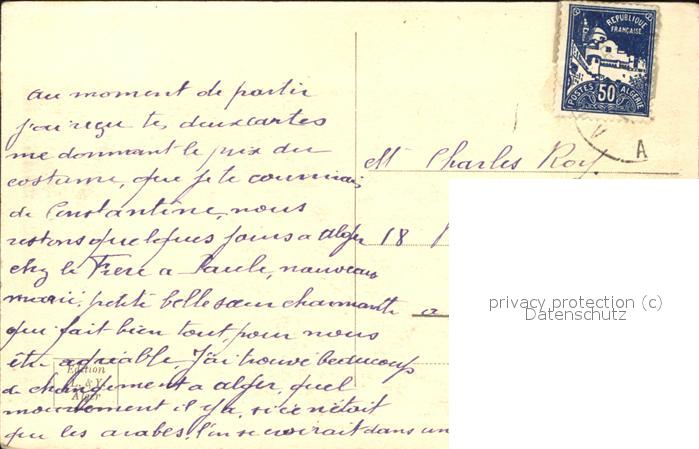 au moment de partir
j'ai reçu tes deux cartes
me donnant le prix du
costume, que je te
de Constantine, nous
restons quelques jours a alger
chez le Frere a Paule, nouveau
marié, petite belle sœur charmante
qui fait bien tout, pour nous
être agréable, J'ai trouvé beaucoup
de changement a alger, quel
mouvement il y a, si ce n'était
que les arabes, l'on se croirait dans un
REPUBLIQUE
FRANÇAISE
POSTES 50 ALGERIE
V A
Mr Charles Roy.
18
a
privacy protection (c)
Datenschutz
Edition
L. & Y.
Alger